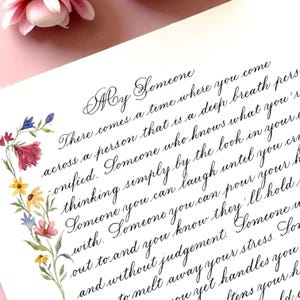 My Someone
There comes a time where you come
across a person that is a deep breath pers
onified. Someone who knows what you'r
thinking simply by the look in your
Someone you can laugh until you cr
with. Someone you can pour your h
out to and you know they'll hold
and without judgement. Someone u
to melt away your stress. Som
you yet handles you
ftens your h